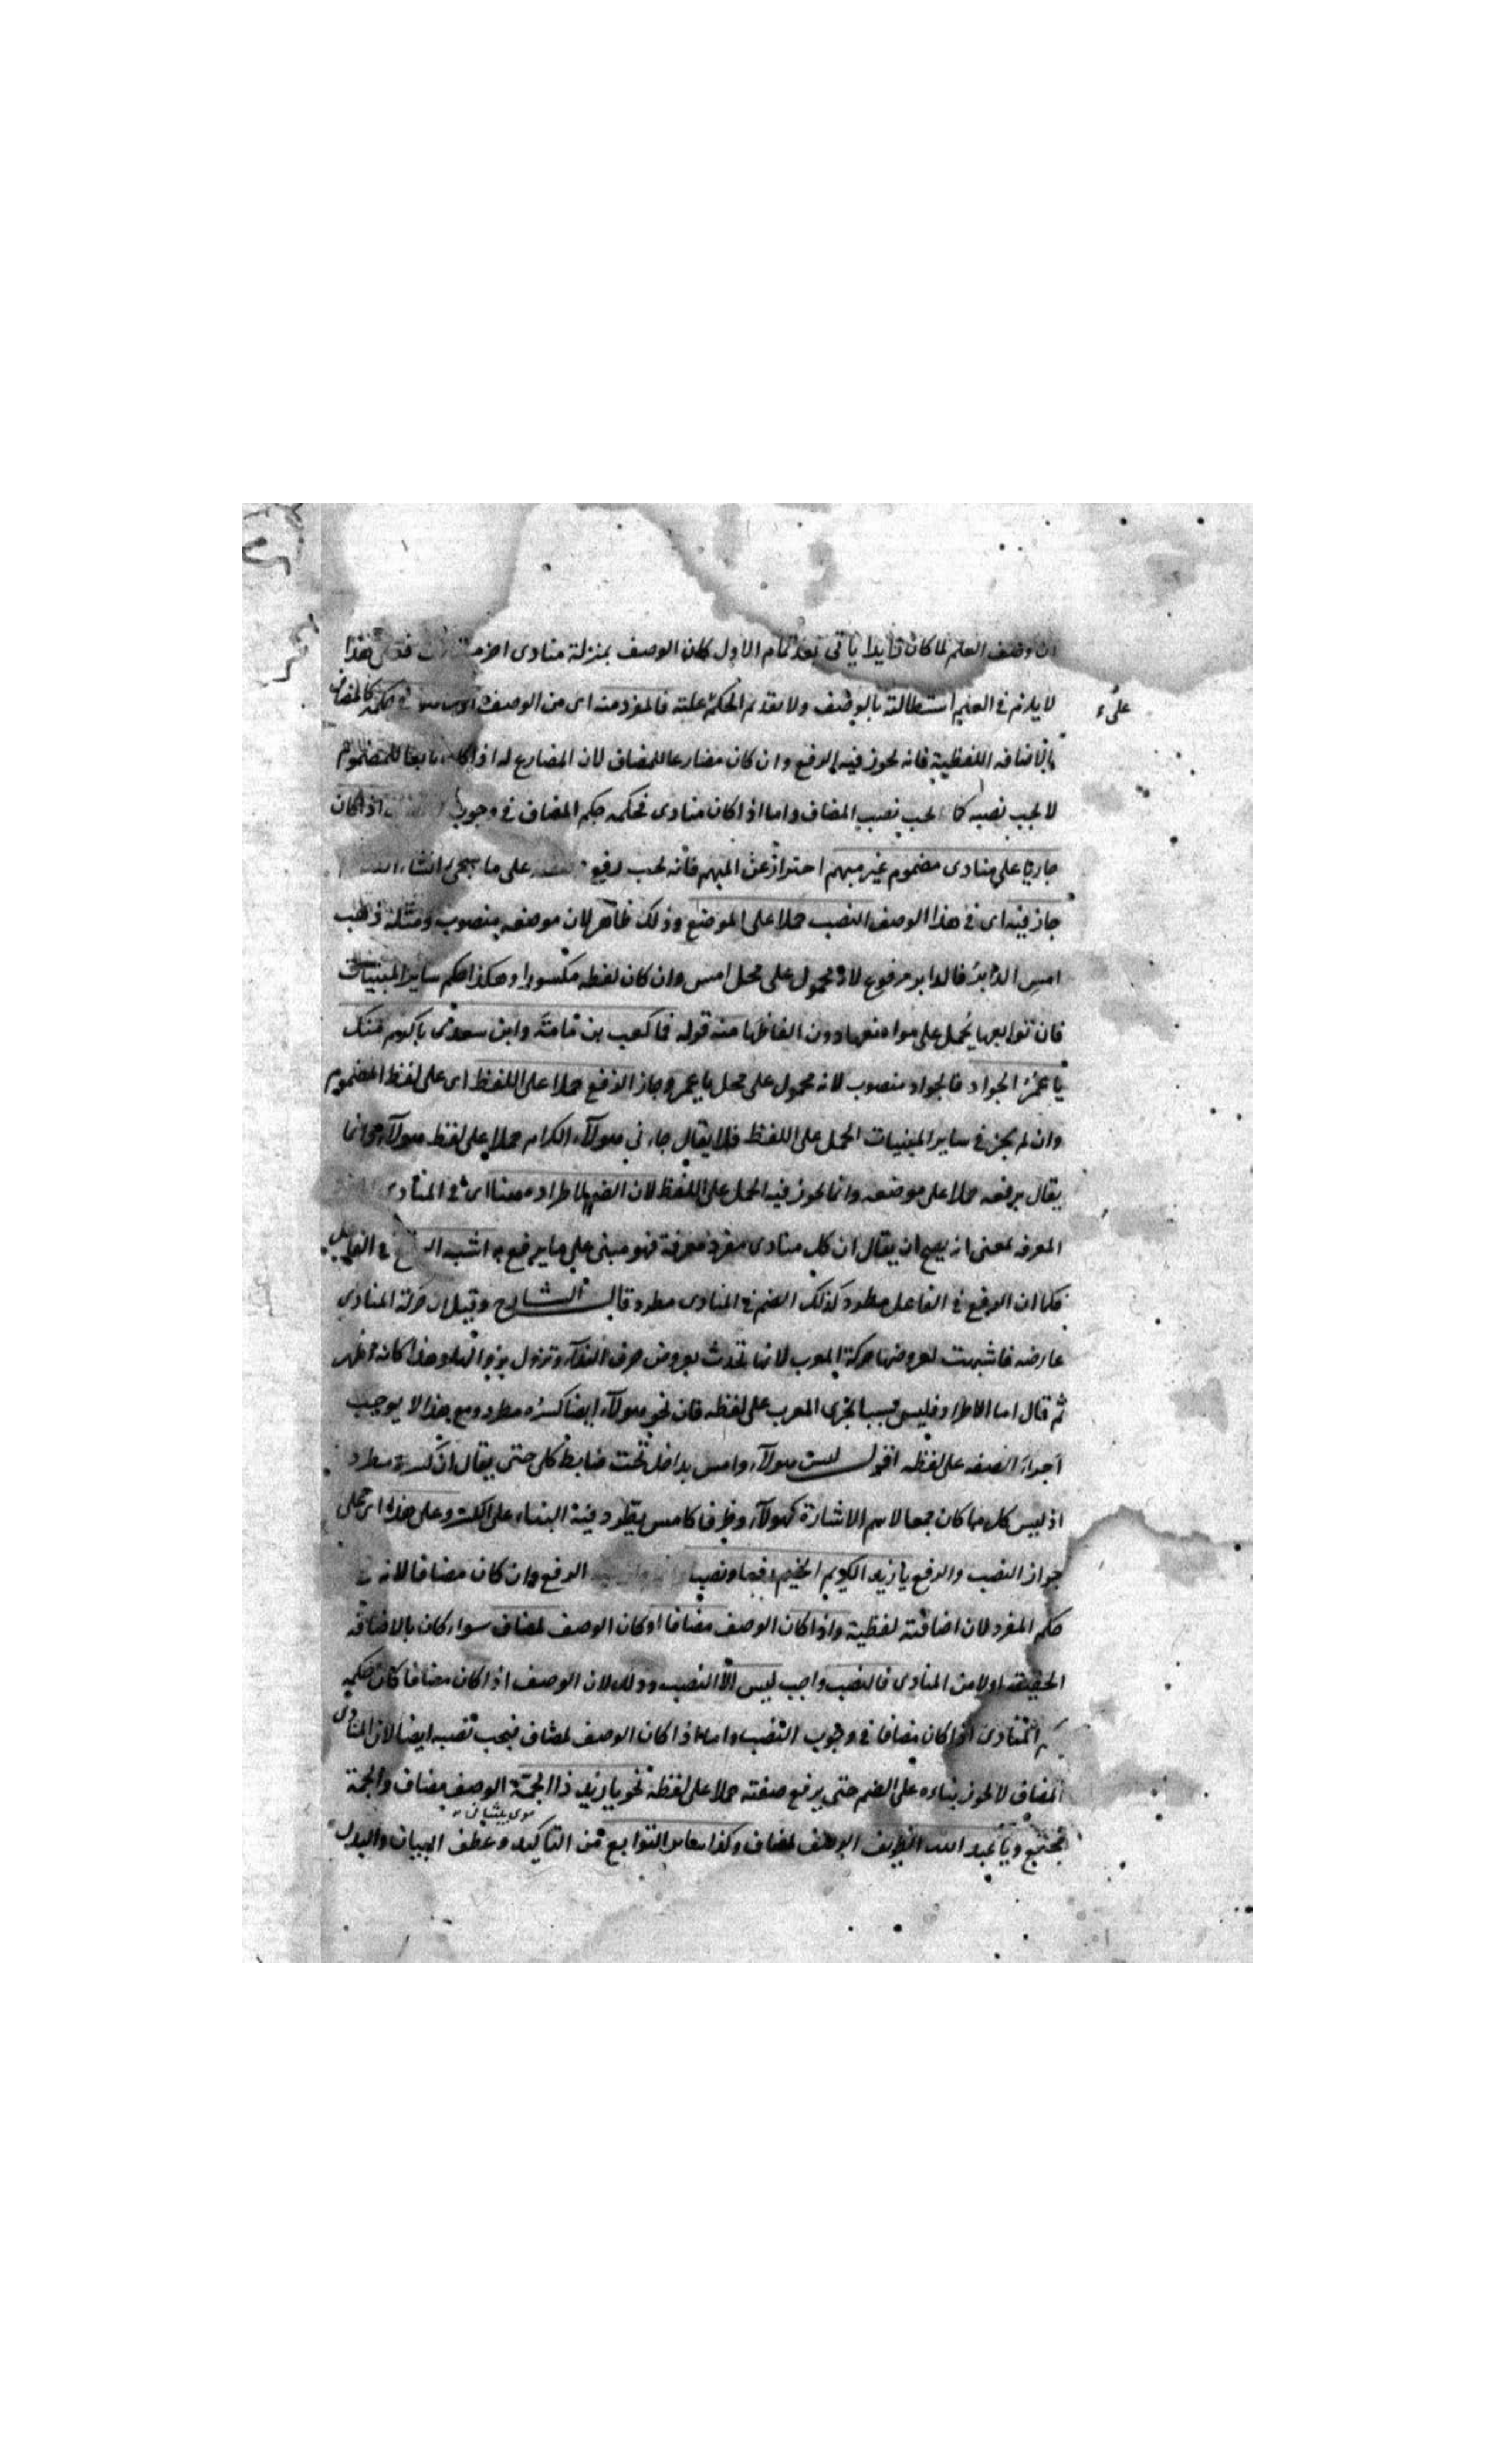 ان وصف العلم لما كان زايدا ياتى بعد تمام الاول كان الوصف بمنزلة منادى اخر فعلى هذا
لا يلزم فى العلم استطالته بالوصف ولا تقديم الحكم عليه فالمفرد منه اى من الوصف فى حكمه كالمضاف
علىء
بالاضافة اللفظية فانه يجوز فيه الرفع وان كان مضارعا للمضاف لان المضارع له اذا كان تابعا للمضموم
لا يجب نصبه كما يجب نصب المضاف واما اذا كان منادى فحكمه حكم المضاف فى وجوب اذا كان
جاريا على منادى مضموم غير مبهم احترازٌ عن المبهم فانه يجب رفع على ما يجىء انشاء الله
جاز فيه اى فى هذا الوصف النصب حملا على الموضع وذلك ظاهر لان موضعه منصوب ومثله ذهب
امسِ الدابرُ فالدابر مرفوع لانه محمول على محل امس وان كان لفظه مكسورا وهكذا حكم ساير المبنيات
فان توابعها يُحمل على مواضعها دون الفاظها منه قوله فما كعب بن مامة وابن سعدى باكرم منك
يا عمرُ الجواد فالجواد منصوب لانه محمول على محل يا عمر وجاز الرفع حملا على اللفظ اى على لفظ المضموم
وان لم يجز فى ساير المبنيات الحمل على اللفظ فلا يقال جاءنى هولآء الكرام حملا على لفظ هولآء وانما
يقال برفعه حملا على موضعه وانما يجوز فيه الحمل على اللفظ لان الضم لاطراده ههنا اى فى المنادى
المعرفة بمعنى انه يصح ان يقال ان كل منادى مفرد معرفة فهو مبنى على ما يرفع به اشبه الرفع فى الفاعل
فكما ان الرفع فى الفاعل مطرد كذلك الضم فى المنادى مطرد قال الشارح وقيل ان حركة المنادى
عارضه فاشبهت لعروضها حركة المعرب لانها تحدث بعروض حرف الندآء وتزول بزواله وهذا كانه اظهر
ثم قال اما الاطراد فليس سببا لجرى المعرب على لفظه فان نحو هولآء ايضا كسره مطرد ومع هذا لا يوجب
اجراء الصفه على لفظه اقول ليس هولآء وامس بداخل تحت ضابط كلى حتى يقال ان كسرة مطرد
اذ ليس كل ما كان جمعا لاسم الاشارة كهولآء وظرفا كامس يطرد فيه البناء على الكسر وعلى هذا اى على
جواز النصب والرفع يا زيد الكريم الخيم رفعا ونصبا الرفع وان كان مضافا لانه فى
حكم المفرد لان اضافته لفظية واذا كان الوصف مضافا او كان الوصف لمضاف سواء كان بالاضافه
الحقيقه اولا من المنادى فالنصب واجب ليس الا النصب وذلك لان الوصف اذا كان مضافا كان حكمه
حكم المنادى اذا كان مضافا فى وجوب النصب واما اذا كان الوصف لمضاف فيجب نصبه ايضا لان المنادى
المضاف لا يجوز بناءه على الضم حتى يرفع صفته حملا على لفظه نحو يا زيد ذا الجمة الوصف مضاف والجمة
مجتمع ويا عبد الله الظريف الوصف لمضاف وكذا ساير التوابع من التاكيد وعطف البيان والبدل